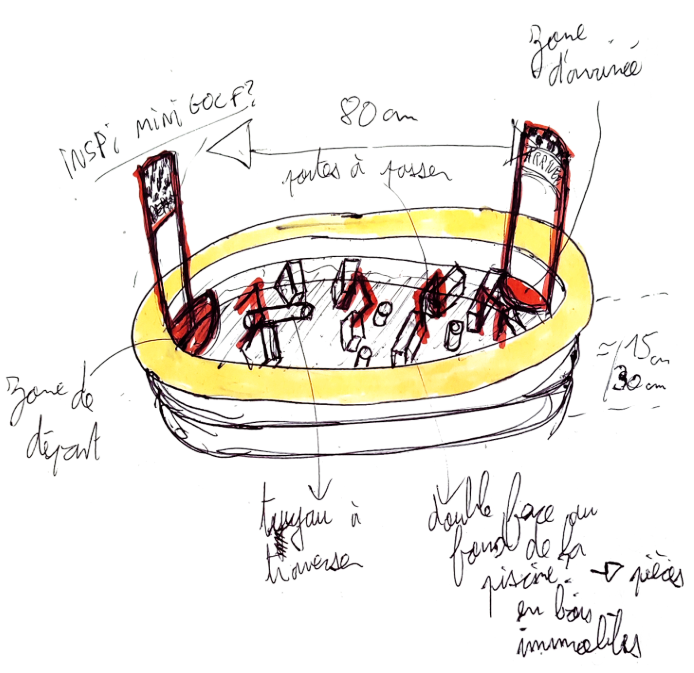 zone
d'arrivée
INSPI MINI GOLF?
80 cm
portes à passer
ARRIVEE
DEPART
≈ 15 cm
30 cm
zone de
départ
tuyau à
traverser
double face au
fond de la
piscine → pièces
en bois
immobiles